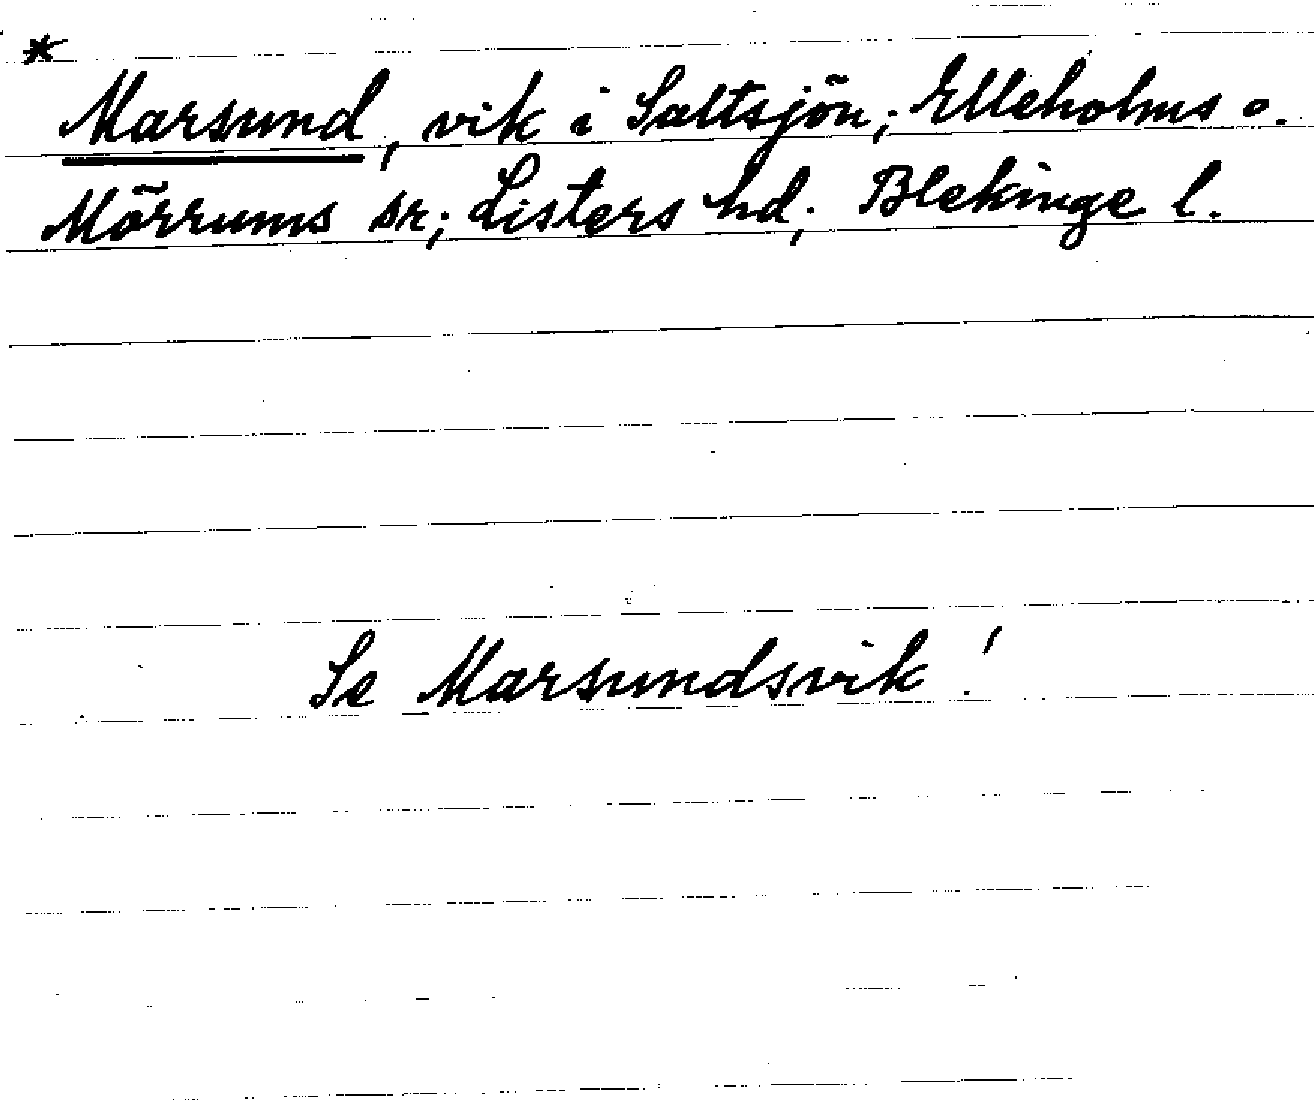 *
Marsund, vik i Saltsjön; Elleholms o.
Mörrums sr; Listers hd; Blekinge l.
Se Marsundsvik!